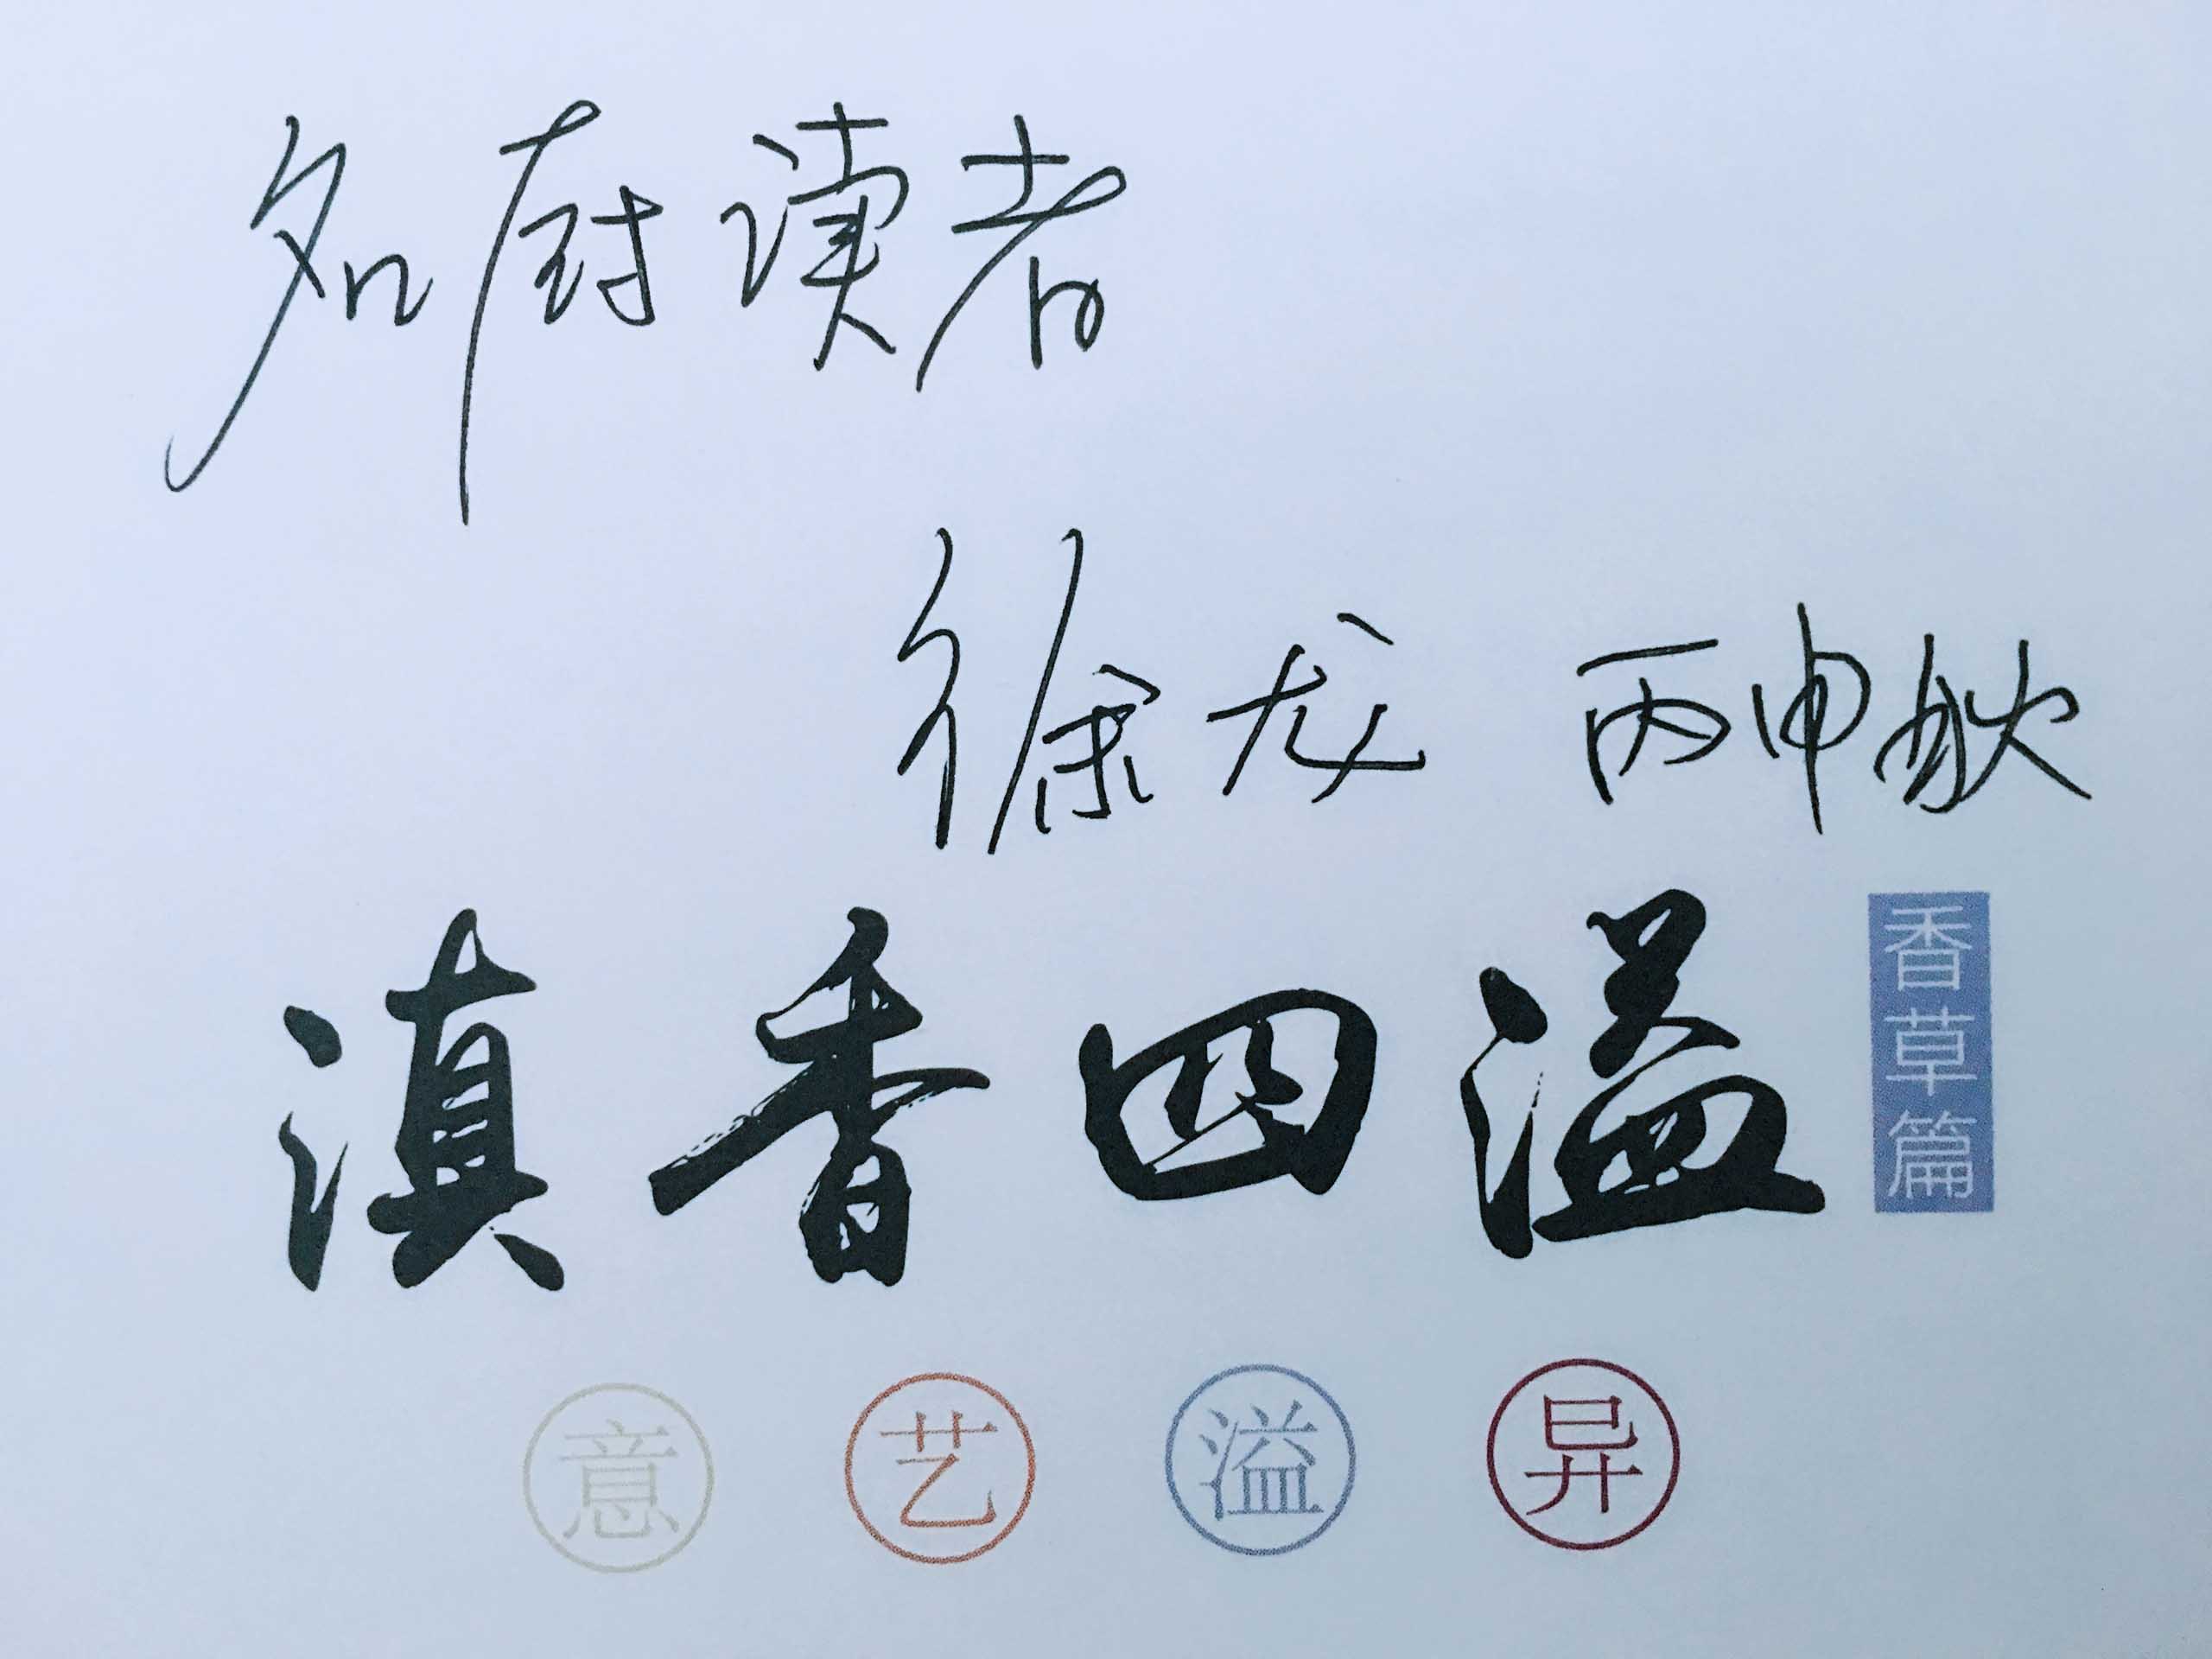 名厨读者
徐龙 丙申秋
滇香四溢
香草篇
意 艺 溢 异